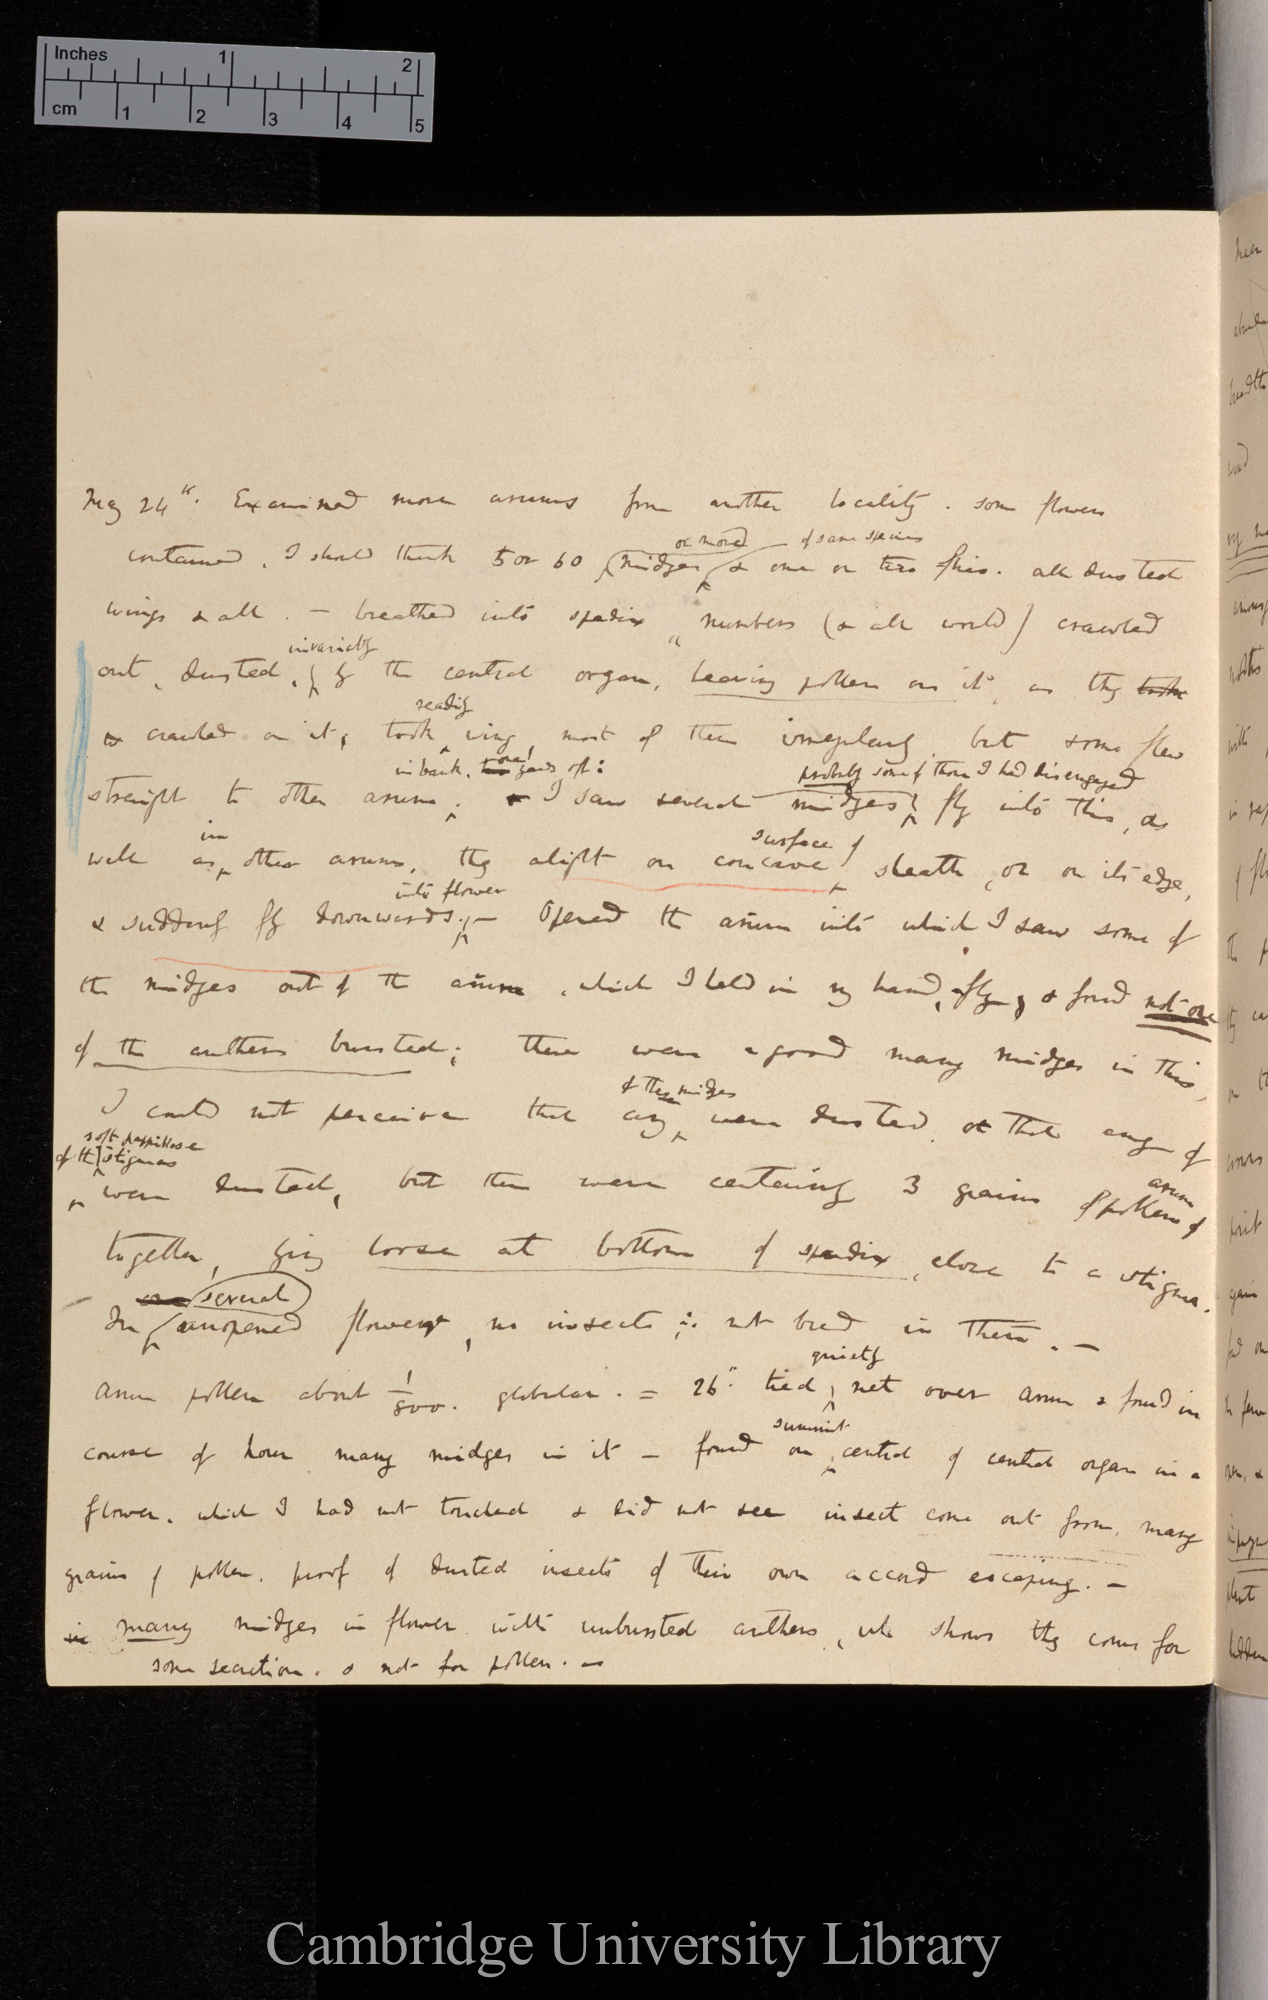 Inches 1 2
cm 1 2 3 4 5
May 24th. Examined more arums from another locality. some flowers
or more of same species
contained, I should think 50 or 60 midges & one or two flies. all dusted
wings & all. — breathed into spadix numbers (& all would) crawled
invariably
out, dusted, by the central organ, leaving pollen on it, as they took
readily
& crawled on it, took wing, most of them irregularly, but some flew
in bank, two one yards off: probably some of those I had disengaged
straight to other arums. & I saw several midges fly into this, as
in surface of
well as other arums, they alight on concave sheath, or on its edge,
into flower
& suddenly fly downwards; — Opened the arum into which I saw some of
the midges out of the arum, which I held in my hand, fly, & found not one
of the anthers bursted; there were a good many midges in this,
of these midges
I could not perceive that any were dusted, or that any of
soft papillose
of the stigmas
arum
were dusted, but there were certainly 3 grains of pollen of
together, lying loose at bottom of spadix, close to a stigma.
one several
In unopened flowers, no insects ∴ not bred in them. —
quietly
Arum pollen about 1/800. globular. = 26th tied net over arum & found in
summit
course of hour many midges in it — found on central of central organ in a
flower, which I had not touched & did not see insect come out from, many
grains of pollen. proof of dusted insects of their own accord escaping. —
in many midges in flower with unbursted anthers, wh shows they come for
some secretion. & not for pollen. —
Cambridge University Library